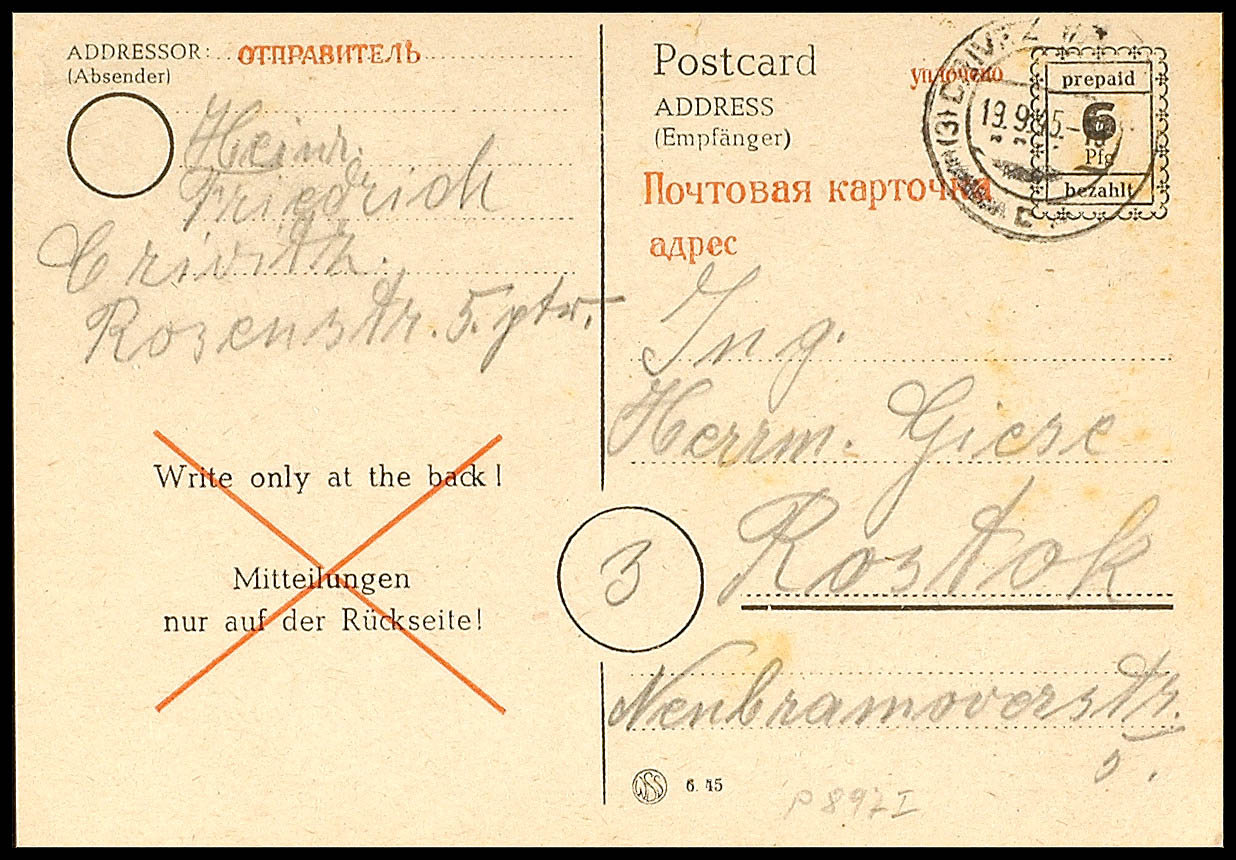 ADDRESSOR: ОТПРАВИТЕЛЬ
(Absender)
Heinr.
Friedrich
Crivitz.
Rosenstr. 5. ptr.
Write only at the back!
Mitteilungen
nur auf der Rückseite!
Postcard
уплочено
ADDRESS
(Empfänger)
Почтовая карточка
адрес
prepaid
6
Pfg
bezahlt
(3) CRIVITZ
19.9.45-
c
Ing.
Herrm. Giese
3
Rostok
Neubramowerstr.
5.
WSS 6.45
P 897 I